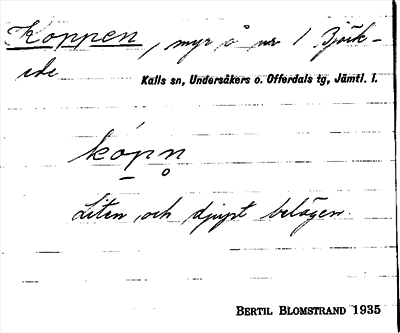 Koppen, myr å nr 1 Björk-
ede
Kalls sn, Undersåkers o. Offerdals tg, Jämtl. l.
kópn̥
Liten och djupt belägen.
BERTIL BLOMSTRAND 1935